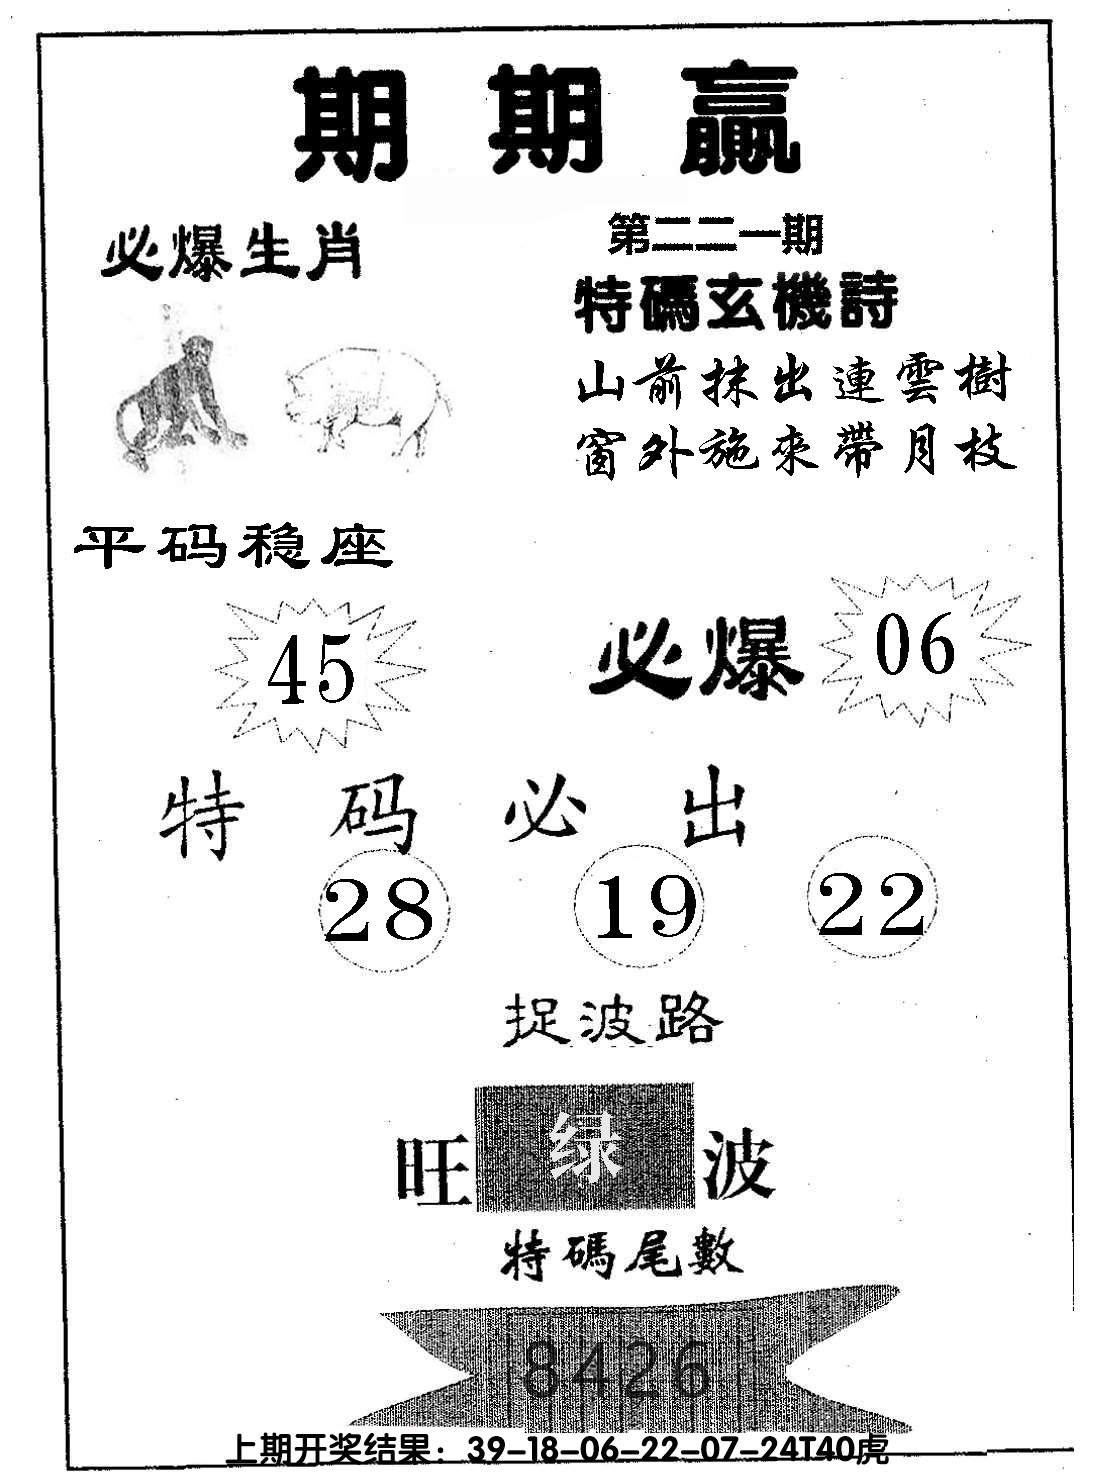 期期赢
必爆生肖
第二二一期
特碼玄機詩
山前抹出連雲樹
窗外施來帶月枝
平码稳座
45
必爆 06
特码必出
28 19 22
捉波路
旺 绿 波
特碼尾數
8426
上期开奖结果：39-18-06-22-07-24T40虎